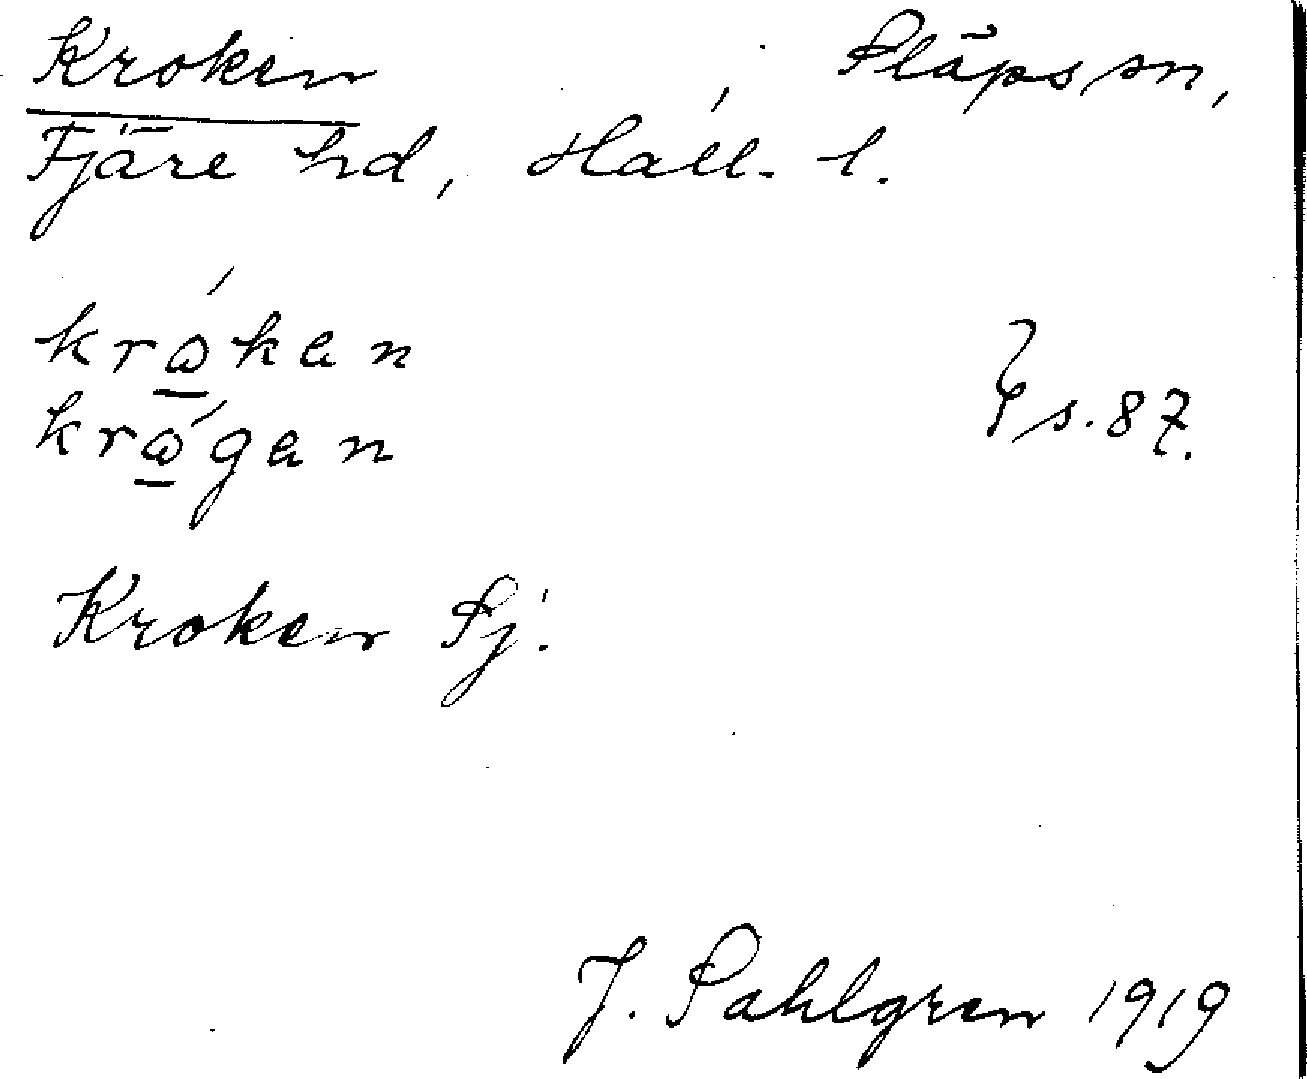 Kroken , Släps sn,
Fjäre hd, Hall. l.
krώ̲kɐn
krώ̲gɐn } s. 87.
Kroken Sj.
J. Sahlgren 1919